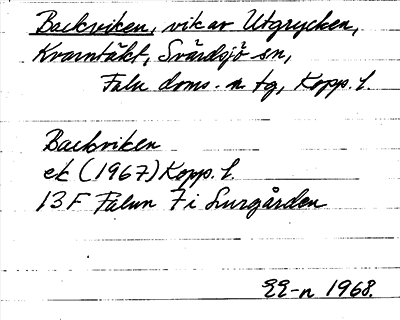 Backviken, vik av Utgrycken,
Kvarntäkt, Svärdsjö sn,
Falu doms. n tg, Kopp. l.
Backviken
ek (1967) Kopp. l.
13F Falun 7i Lurgården
1968.